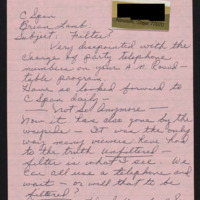 C Span
Brian Lamb
Subject: Filter!
Very disappointed with the
change of party telephone
numbers on your A.M. Round-
table program
Have so looked forward to
C Span daily —
Not so anymore —
Now it has also gone by the
wayside — It was the only
way many viewers have had
to the truth unfiltered
filter is what I see. We
can all use a telephone and
wait — or will that to be
filtered?